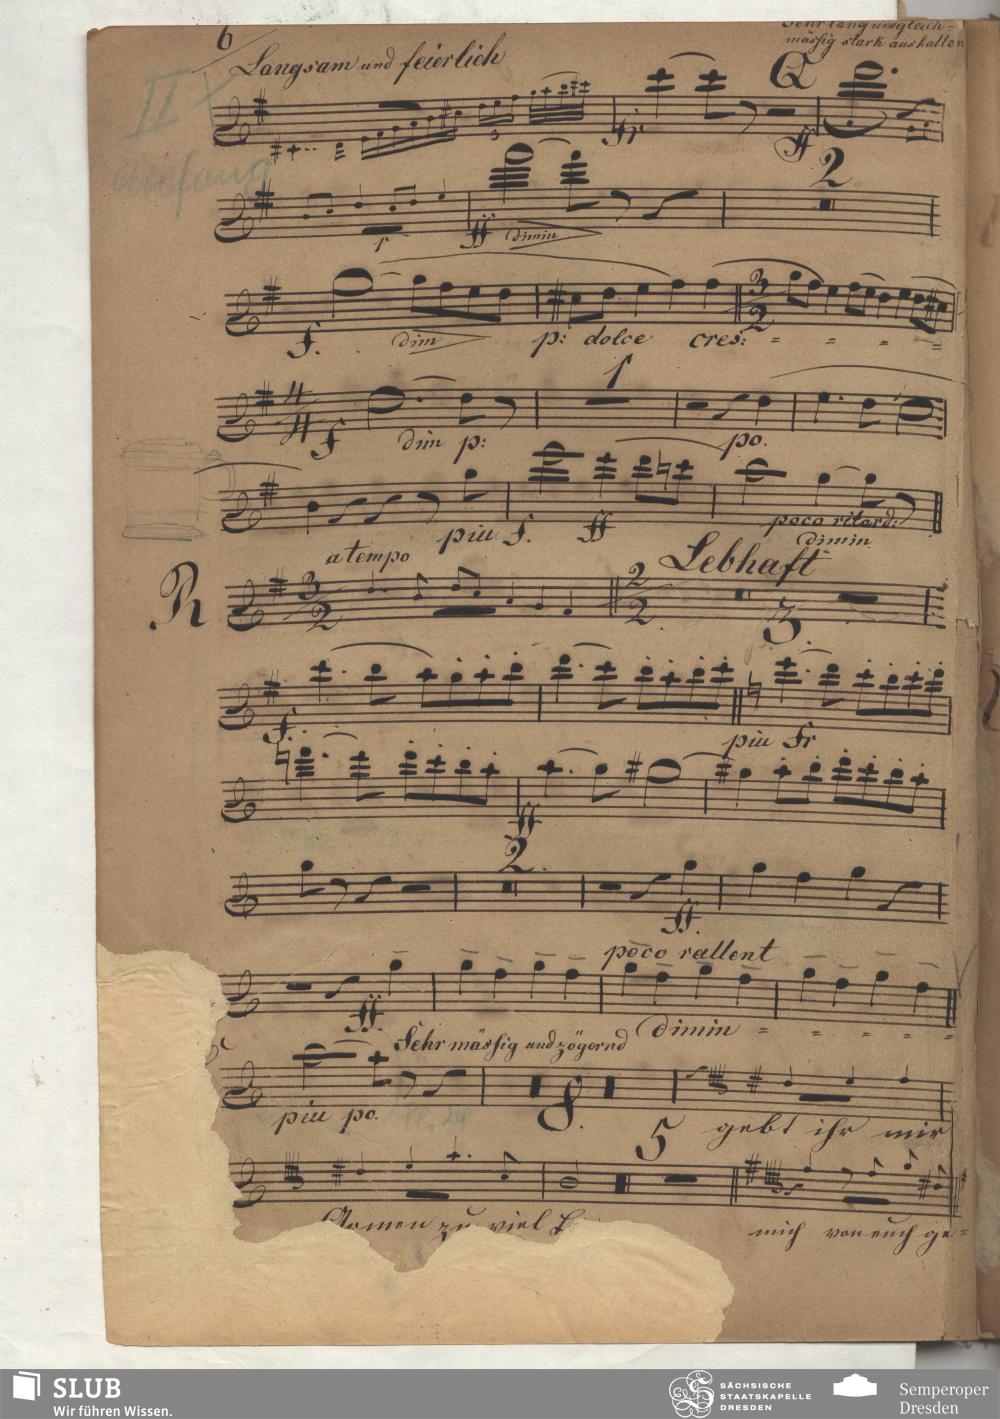 6
Langsam und feierlich
Sehr lang und gleich-
mässig stark aushalten
II
Anfang
Q
3
fr
ff
2
1
ff dimin
3
2
f. dim p: dolce cres: = = = =
4
4
1
f dim p: po.
piu f. ff poco ritard:
dimin
R
a tempo
Lebhaft
3
2
2
2
3
f.
piu fr
ff
2.
ff.
poco rallent
ff. Dimin = = = = =
Sehr mässig und zögernd
piu po. 8. gebt ihr mir
5
Armen zu viel
mich von euch ge=
SLUB
Wir führen Wissen.
SÄCHSISCHE
STAATSKAPELLE
DRESDEN
Semperoper
Dresden